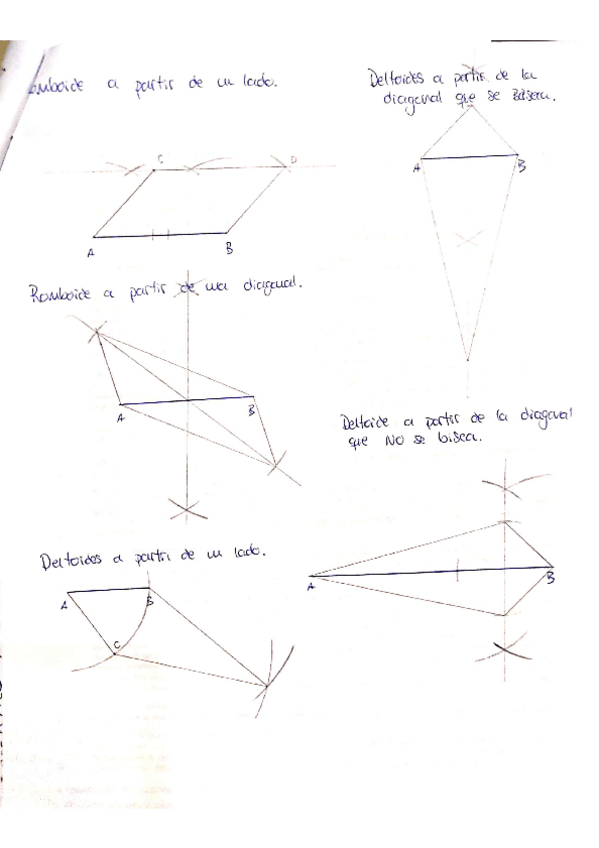 omboide a partir de un lado.
C
D
A
B
Deltoides a partir de la
diagonal que se biseca.
A
B
Romboide a partir de una diagonal.
A
B
Deltoide a partir de la diagonal
que NO se biseca.
A
B
Deltoides a partir de un lado.
A
B
C